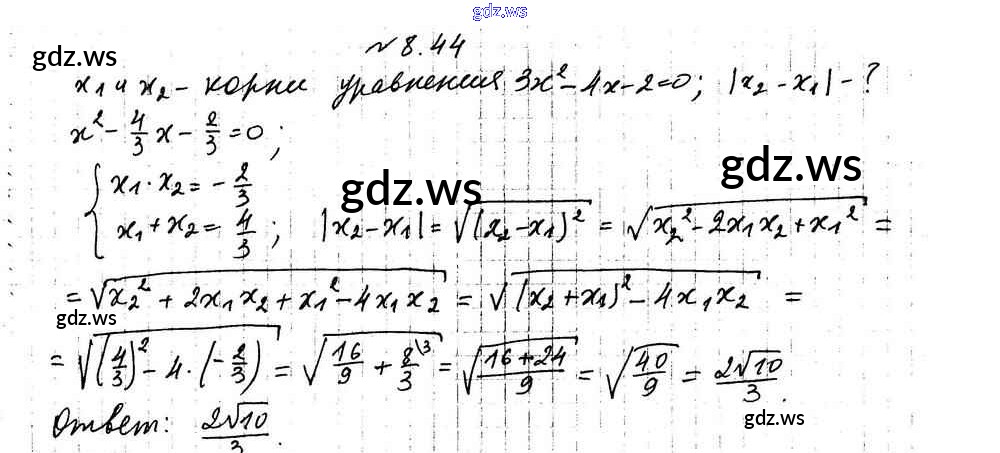 gdz.ws
№ 8.44
gdz.ws
x₁ и x₂ - корни уравнения 3x² - 4x - 2 = 0; |x₂ - x₁| - ?
x² - 4/3 x - 2/3 = 0;
gdz.ws
{ x₁ · x₂ = - 2/3
gdz.ws
x₁ + x₂ = 4/3; |x₂ - x₁| = √(x₂ - x₁)² = √x₂² - 2x₁x₂ + x₁² =
= √x₂² + 2x₁x₂ + x₁² - 4x₁x₂ = √(x₂ + x₁)² - 4x₁x₂ =
gdz.ws
= √(4/3)² - 4 · (- 2/3) = √16/9 + 8/3 \3 = √16 + 24/9 = √40/9 = 2√10/3.
gdz.ws
Ответ: 2√10/3.